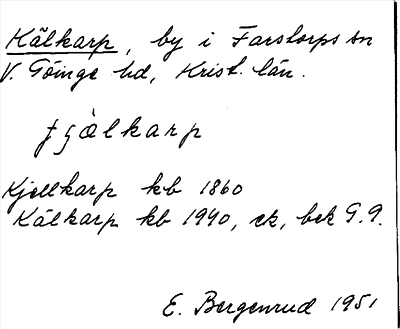 Kälkarp, by i Farstorps sn
V. Göinge hd, Krist. län.
Kjellkarp kb 1860
Kälkarp kb 1940, ek, bek G.9.
E. Bergenrud 1951